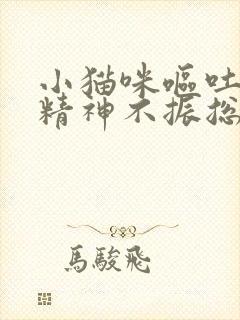 小猫咪呕吐
精神不振总
馬駿飛